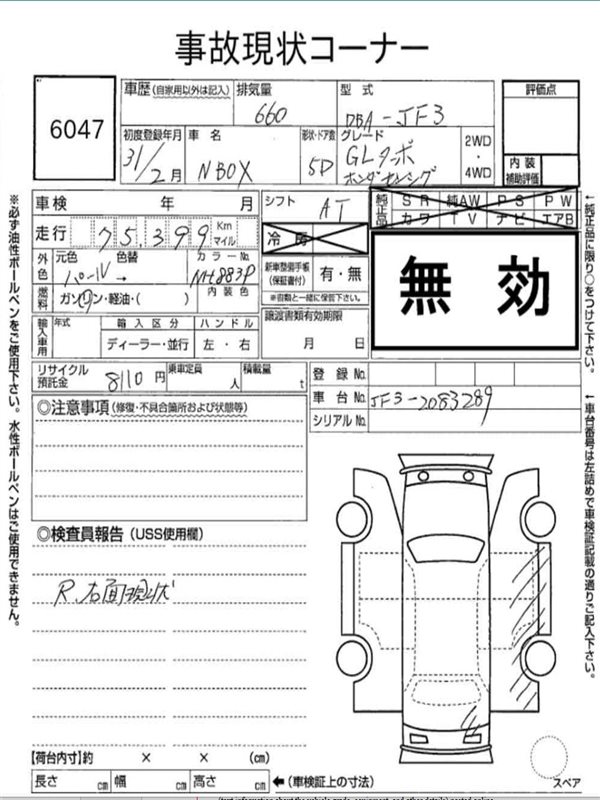 事故現状コーナー
6047
車歴 (自家用以外は記入) 排気量 660 型式 DBA-JF3 評価点
初度登録年月 31/2月 車名 NBOX 形状・ドア数 5D グレード GLターボ ホンダセンシング 2WD・4WD 内装補助評価
車検 年 月 シフト AT 純正品 SR 純AW PS PW
カワ TV ナビ エアB
走行 75,399 Km マイル 冷房
無効
外色 元色 パール 色替 → カラーNo. NH883P
新車整備手帳(保証書付) 有・無
※書類と一緒に保管下さい。
燃料 ガソリン・軽油・( ) 内装色
輸入車用 年式 輸入区分 ハンドル
ディーラー・並行 左・右
譲渡書類有効期限
月 日
リサイクル預託金 8110円 乗車定員 人 積載量 t 登録No.
車台No. JF3-2083289
シリアルNo.
◎注意事項 (修復・不具合箇所および状態等)
◎検査員報告 (USS使用欄)
R.右面現状
【荷台内寸】約 × × (cm)
長さ cm 幅 cm 高さ cm ←(車検証上の寸法)
スペア
※必ず油性ボールペンをご使用下さい。水性ボールペンはご使用できません。
←純正品に限り○をつけて下さい。
←車台番号は左詰めで車検証記載の通りご記入下さい。